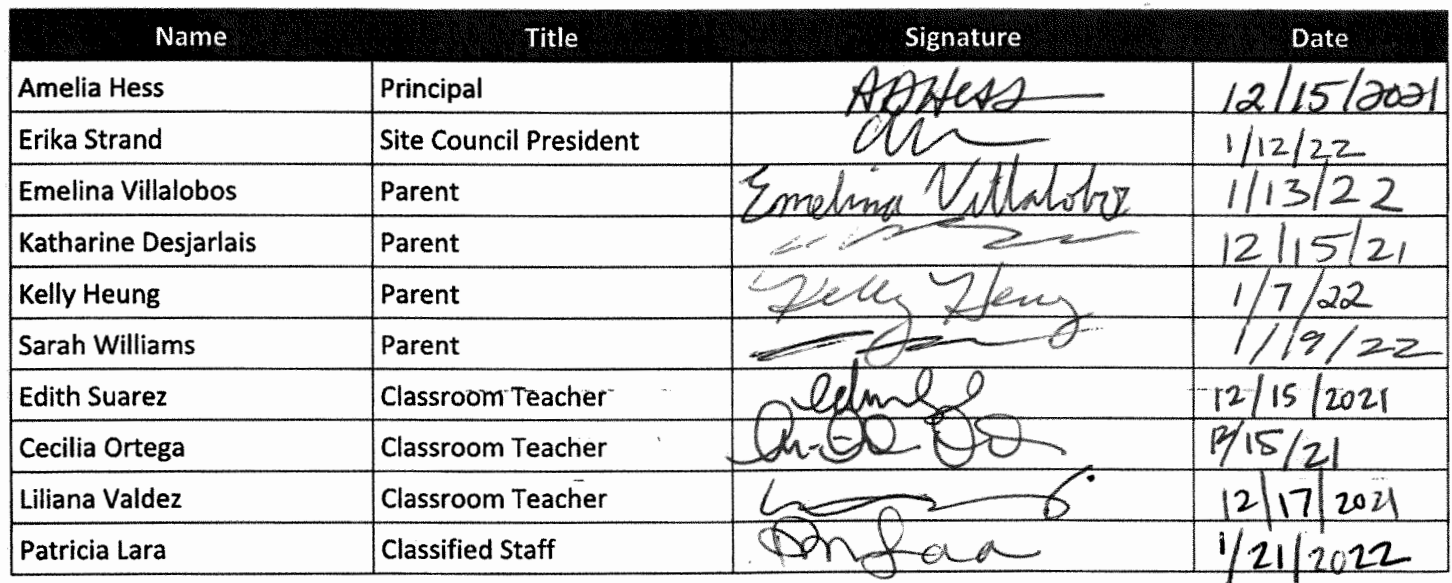 Name Title Signature Date
Amelia Hess Principal AAHess 12/15/2021
Erika Strand Site Council President 1/12/22
Emelina Villalobos Parent Emelina Villalobos 1/13/22
Katharine Desjarlais Parent 12/15/21
Kelly Heung Parent Kelly Heung 1/7/22
Sarah Williams Parent 1/19/22
Edith Suarez Classroom Teacher 12/15/2021
Cecilia Ortega Classroom Teacher 12/15/21
Liliana Valdez Classroom Teacher 12/17/2021
Patricia Lara Classified Staff 1/21/2022